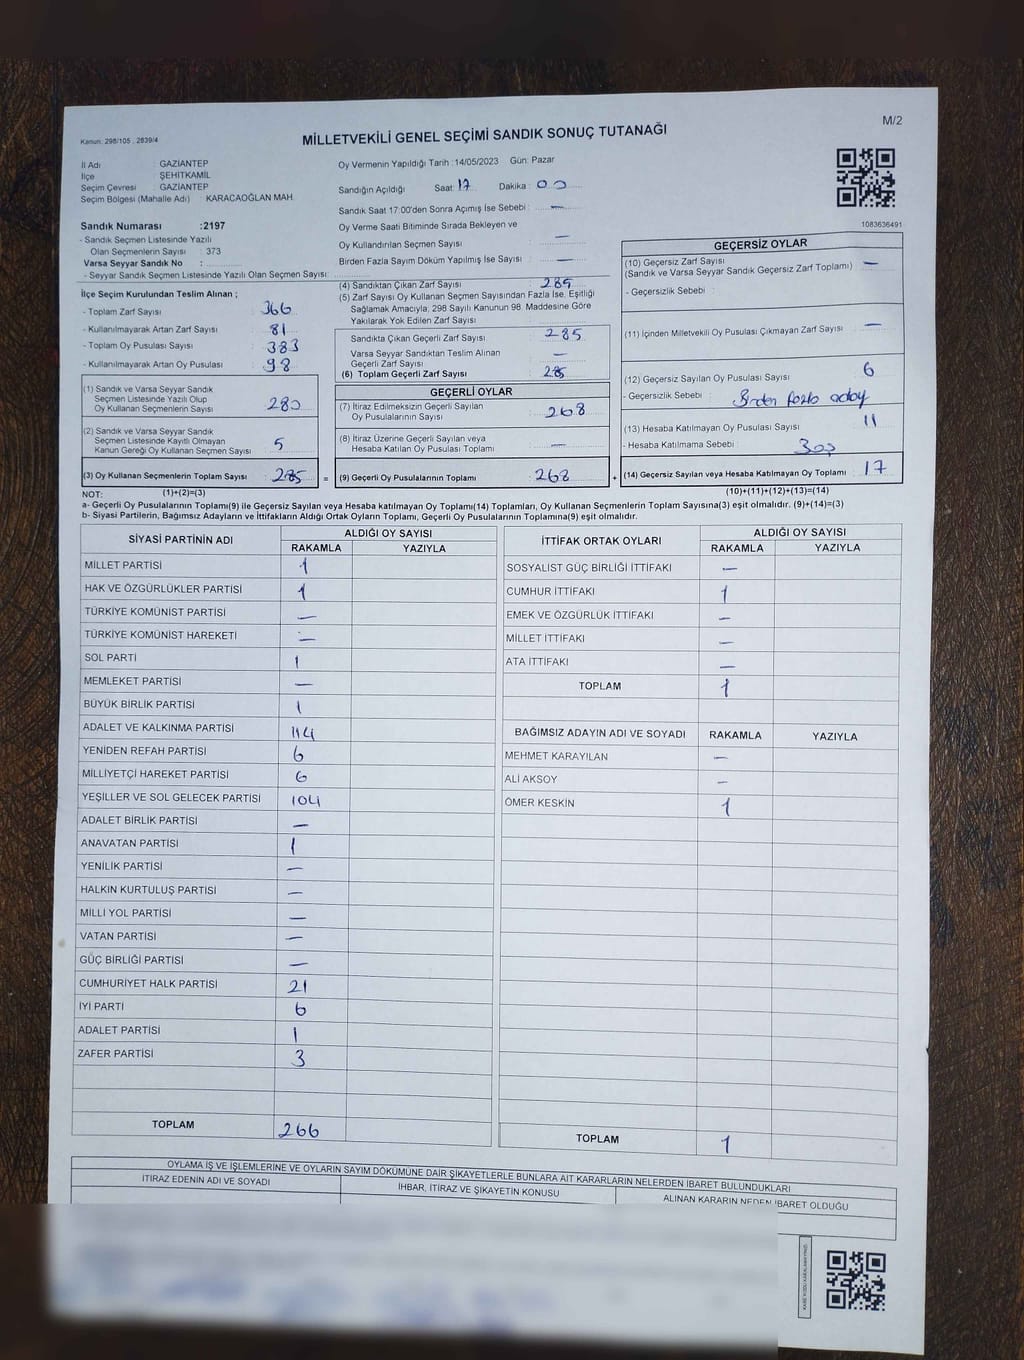 M/2
Kanun: 298/105 , 2839/4
MİLLETVEKİLİ GENEL SEÇİMİ SANDIK SONUÇ TUTANAĞI
İl Adı : GAZİANTEP
İlçe : ŞEHİTKAMİL
Seçim Çevresi : GAZİANTEP
Seçim Bölgesi (Mahalle Adı) : KARACAOĞLAN MAH.
Sandık Numarası :2197
- Sandık Seçmen Listesinde Yazılı
Olan Seçmenlerin Sayısı : 373
Varsa Seyyar Sandık No :
- Seyyar Sandık Seçmen Listesinde Yazılı Olan Seçmen Sayısı:
Oy Vermenin Yapıldığı Tarih :14/05/2023 Gün: Pazar
Sandığın Açıldığı Saat: 17 Dakika : 00
Sandık Saat 17:00'den Sonra Açımış İse Sebebi : —
Oy Verme Saati Bitiminde Sırada Bekleyen ve
Oy Kullandırılan Seçmen Sayısı : —
Birden Fazla Sayım Döküm Yapılmış İse Sayısı : —
1083636491
İlçe Seçim Kurulundan Teslim Alınan ;
- Toplam Zarf Sayısı : 366
- Kullanılmayarak Artan Zarf Sayısı : 81
- Toplam Oy Pusulası Sayısı : 383
- Kullanılmayarak Artan Oy Pusulası : 98
(1) Sandık ve Varsa Seyyar Sandık
Seçmen Listesinde Yazılı Olup
Oy Kullanan Seçmenlerin Sayısı : 280
(2) Sandık ve Varsa Seyyar Sandık
Seçmen Listesinde Kayıtlı Olmayan
Kanun Gereği Oy Kullanan Seçmen Sayısı : 5
(3) Oy Kullanan Seçmenlerin Toplam Sayısı : 285
(1)+(2)=(3)
(4) Sandıktan Çıkan Zarf Sayısı : 285
(5) Zarf Sayısı Oy Kullanan Seçmen Sayısından Fazla İse, Eşitliği
Sağlamak Amacıyla, 298 Sayılı Kanunun 98. Maddesine Göre
Yakılarak Yok Edilen Zarf Sayısı :
Sandıkta Çıkan Geçerli Zarf Sayısı : 285
Varsa Seyyar Sandıktan Teslim Alınan
Geçerli Zarf Sayısı : —
(6) Toplam Geçerli Zarf Sayısı : 285
GEÇERLİ OYLAR
(7) İtiraz Edilmeksizin Geçerli Sayılan
Oy Pusulalarının Sayısı : 268
(8) İtiraz Üzerine Geçerli Sayılan veya
Hesaba Katılan Oy Pusulası Toplamı : —
= (9) Geçerli Oy Pusulalarının Toplamı : 268
GEÇERSİZ OYLAR
(10) Geçersiz Zarf Sayısı
(Sandık ve Varsa Seyyar Sandık Geçersiz Zarf Toplamı) : —
- Geçersizlik Sebebi :
(11) İçinden Milletvekili Oy Pusulası Çıkmayan Zarf Sayısı : —
(12) Geçersiz Sayılan Oy Pusulası Sayısı : 6
- Geçersizlik Sebebi : Birden fazla aday
(13) Hesaba Katılmayan Oy Pusulası Sayısı : 11
- Hesaba Katılmama Sebebi : Boş
+ (14) Geçersiz Sayılan veya Hesaba Katılmayan Oy Toplamı : 17
(10)+(11)+(12)+(13)=(14)
NOT:
a- Geçerli Oy Pusulalarının Toplamı(9) ile Geçersiz Sayılan veya Hesaba katılmayan Oy Toplamı(14) Toplamları, Oy Kullanan Seçmenlerin Toplam Sayısına(3) eşit olmalıdır. (9)+(14)=(3)
b- Siyasi Partilerin, Bağımsız Adayların ve İttifakların Aldığı Ortak Oyların Toplamı, Geçerli Oy Pusulalarının Toplamına(9) eşit olmalıdır.
SİYASİ PARTİNİN ADI ALDIĞI OY SAYISI
RAKAMLA YAZIYLA
MİLLET PARTİSİ 1
HAK VE ÖZGÜRLÜKLER PARTİSİ 1
TÜRKİYE KOMÜNİST PARTİSİ —
TÜRKİYE KOMÜNİST HAREKETİ —
SOL PARTİ 1
MEMLEKET PARTİSİ —
BÜYÜK BİRLİK PARTİSİ 1
ADALET VE KALKINMA PARTİSİ 114
YENİDEN REFAH PARTİSİ 6
MİLLİYETÇİ HAREKET PARTİSİ 6
YEŞİLLER VE SOL GELECEK PARTİSİ 104
ADALET BİRLİK PARTİSİ —
ANAVATAN PARTİSİ 1
YENİLİK PARTİSİ —
HALKIN KURTULUŞ PARTİSİ —
MİLLİ YOL PARTİSİ —
VATAN PARTİSİ —
GÜÇ BİRLİĞİ PARTİSİ —
CUMHURİYET HALK PARTİSİ 21
İYİ PARTİ 6
ADALET PARTİSİ 1
ZAFER PARTİSİ 3
TOPLAM 266
İTTİFAK ORTAK OYLARI ALDIĞI OY SAYISI
RAKAMLA YAZIYLA
SOSYALİST GÜÇ BİRLİĞİ İTTİFAKI —
CUMHUR İTTİFAKI 1
EMEK VE ÖZGÜRLÜK İTTİFAKI —
MİLLET İTTİFAKI —
ATA İTTİFAKI —
TOPLAM 1
BAĞIMSIZ ADAYIN ADI VE SOYADI RAKAMLA YAZIYLA
MEHMET KARAYILAN —
ALİ AKSOY —
ÖMER KESKİN 1
TOPLAM 1
OYLAMA İŞ VE İŞLEMLERİNE VE OYLARIN SAYIM DÖKÜMÜNE DAİR ŞİKAYETLERLE BUNLARA AİT KARARLARIN NELERDEN İBARET BULUNDUKLARI
İTİRAZ EDENİN ADI VE SOYADI İHBAR, İTİRAZ VE ŞİKAYETİN KONUSU ALINAN KARARIN NEDEN İBARET OLDUĞU